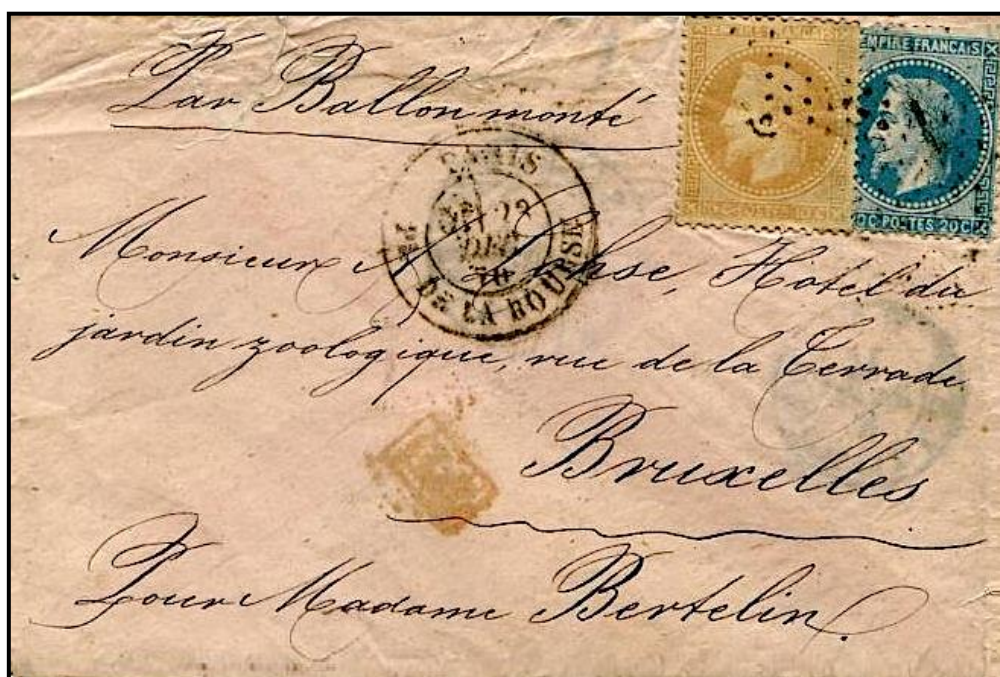 Par Ballon monté
EMPIRE FRANCAIS
POSTES 20 C
PARIS
22
DEC
70
PL. DE LA BOURSE
Monsieur Hotel du
jardin zoologique, rue de la
Bruxelles
Pour Madame Bertelin.